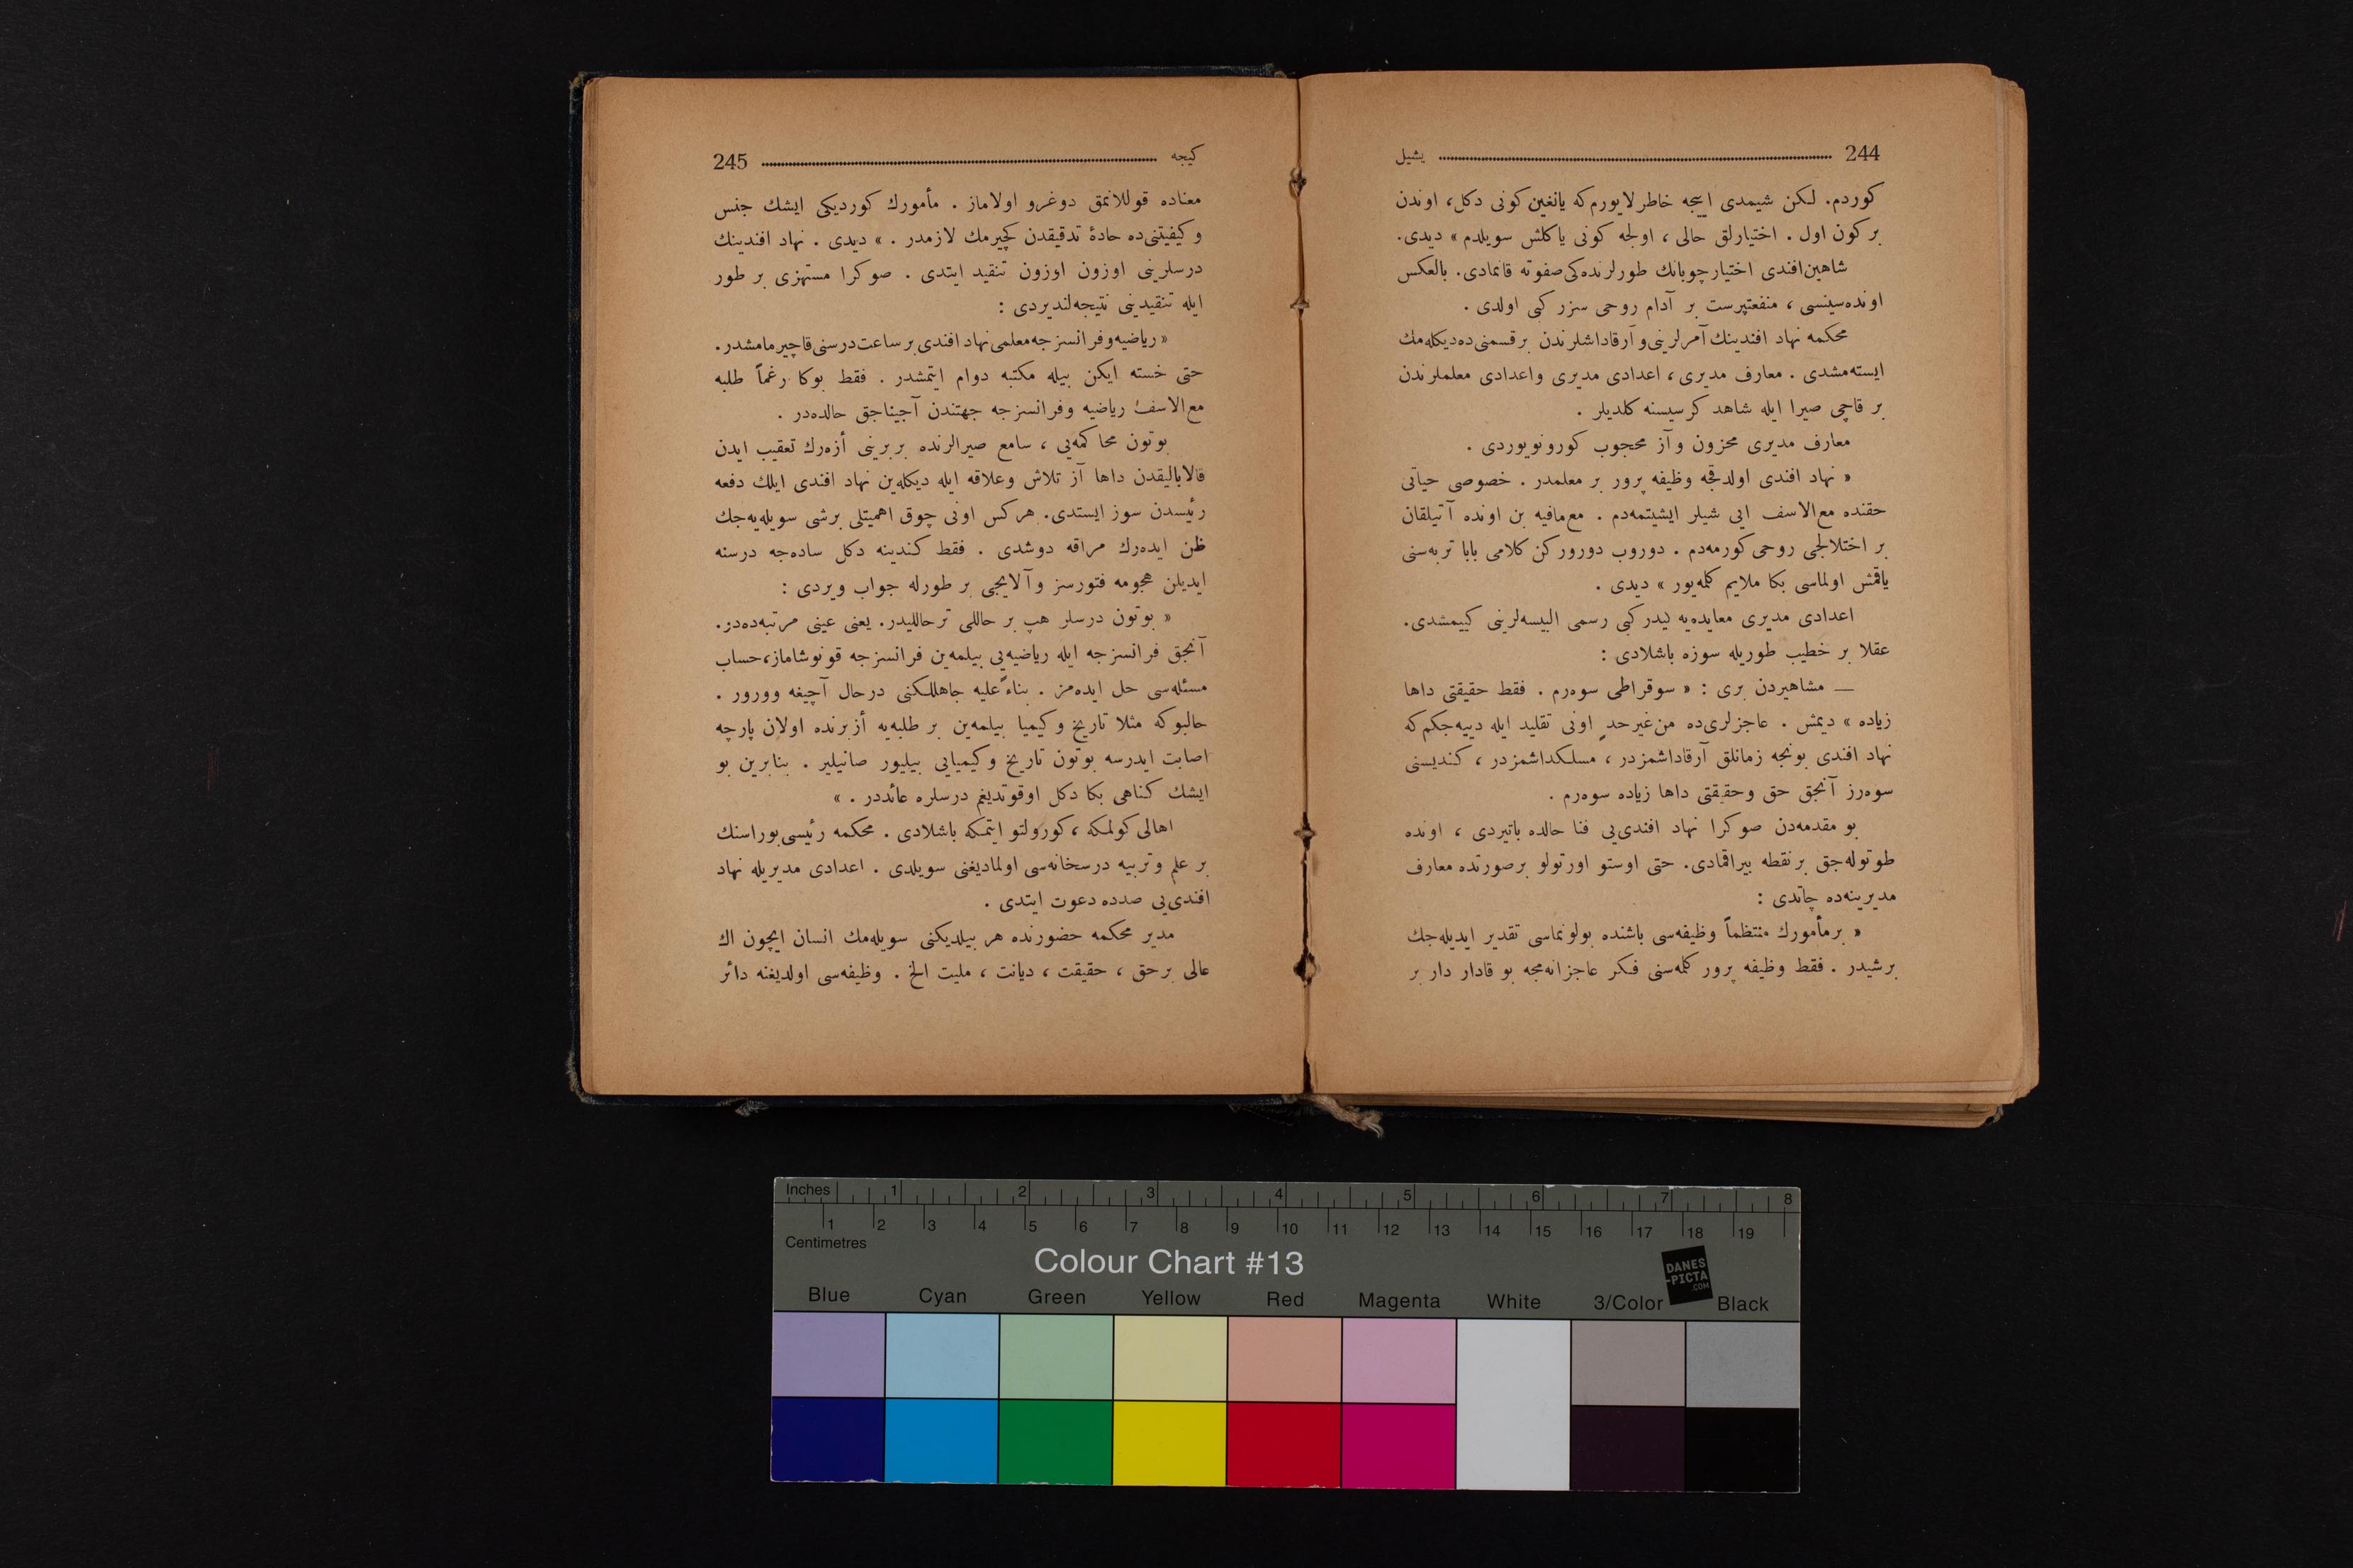 244 يشيل
كوردم. لكن شيمدى اييجه خاطرلايورم‌كه يانغين كونى دكل، اوندن
بر كون اول . اختيارلق حالى ، اولجه كونى ياكلش سويلدم » ديدى.
شاهين‌افندى اختيار چوبانك طورلرنده‌كى صفوته قانمادى. بالعكس
اونده سينسى ، منفعتپرست بر آدام روحى سزر كبى اولدى .
محكمه نهاد افندينك آمرلرينى و آرقاداشلرندن بر قسمنى ده ديكله‌مك
ايسته‌مشدى . معارف مديرى، اعدادى مديرى واعدادى معلملرندن
بر قاچى صيرا ايله شاهد كرسيسنه كلديلر .
معارف مديرى محزون و آز محجوب كورونويوردى .
« نهاد افندى اولدقجه وظيفه پرور بر معلمدر . خصوصى حياتى
حقنده مع‌الاسف ايى شيلر ايشيتمه‌دم . مع‌مافيه بن اونده آتيلقان
بر اختلالجى روحى كورمه‌دم . دوروب دوروركن كلامى بابا تربه‌سنى
ياقمش اولماسى بكا ملايم كلمه‌يور » ديدى .
اعدادى مديرى معايده‌يه كيدر كبى رسمى البيسه‌لرينى كييمشدى.
عقلا بر خطيب طوريله سوزه باشلادى :
— مشاهيردن برى : « سوقراطى سوه‌رم . فقط حقيقتى داها
زياده » ديمش . عاجزلرى‌ده من‌غيرحدٍ اونى تقليد ايله دييه‌جكم‌كه
نهاد افندى بونجه زمانلق آرقاداشمزدر ، مسلكداشمزدر ، كنديسنى
سوه‌رز آنجق حق وحقيقتى داها زياده سوه‌رم .
بو مقدمه‌دن صوكرا نهاد افندى‌يى فنا حالده باتيردى ، اونده
طوتوله‌جق بر نقطه بيراقمادى. حتى اوستو اورتولو بر صورتده معارف
مديرينه‌ده چاتدى :
« بر مأمورك منتظماً وظيفه‌سى باشنده بولونماسى تقدير ايديله‌جك
بر شيدر . فقط وظيفه پرور كلمه‌سنى فكر عاجزانه‌مجه بو قادار دار بر
كيجه 245
معناده قوللانمق دوغرو اولاماز . مأمورك كورديكى ايشك جنس
و كيفيتنى‌ده حادهٔ تدقيقدن كچيرمك لازمدر . » ديدى . نهاد افندينك
درسلرينى اوزون اوزون تنقيد ايتدى . صوكرا مستهزى بر طور
ايله تنقيدينى نتيجه‌لنديردى :
« رياضيه وفرانسزجه معلمى نهاد افندى بر ساعت درسنى قاچيرمامشدر.
حتى خسته ايكن بيله مكتبه دوام ايتمشدر . فقط بوكا رغماً طلبه
مع‌الاسف رياضيه وفرانسزجه جهتندن آجيناجق حالده‌در .
بوتون محاكمه‌يى ، سامع صيرالرنده بربرينى أزه‌رك تعقيب ايدن
قالاباليقدن داها آز تلاش وعلاقه ايله ديكله‌ين نهاد افندى ايلك دفعه
رئيسدن سوز ايستدى. هركس اونى چوق اهميتلى برشى سويله‌يه‌جك
ظن ايده‌رك مراقه دوشدى . فقط كندينه دكل ساده‌جه درسنه
ايديلن هجومه فتورسز و آلايجى بر طورله جواب ويردى :
« بوتون درسلر هپ بر حاللى ترحالليدر. يعنى عينى مرتبه‌ده‌در.
آنجق فرانسزجه ايله رياضيه‌يى بيلمه‌ين فرانسزجه قونوشاماز، حساب
مسئله‌سى حل ايده‌مز . بناءً عليه جاهللكنى درحال آچيغه وورور .
حالبوكه مثلا تاريخ و كيميا بيلمه‌ين بر طلبه‌يه أزبرنده اولان پارچه
اصابت ايدرسه بوتون تاريخ و كيميايى بيليور صانيلير . بنابرين بو
ايشك كناهى بكا دكل اوقوتديغم درسلره عائددر . »
اهالى كولمكه ، كورولتو ايتمكه باشلادى . محكمه رئيسى بوراسنك
بر علم وتربيه درسخانه‌سى اولماديغنى سويلدى . اعدادى مديريله نهاد
افندى‌يى صدده دعوت ايتدى .
مدير محكمه حضورنده هر بيلديكنى سويله‌مك انسان ايچون اك
عالى بر حق ، حقيقت ، ديانت ، مليت الخ . وظيفه‌سى اولديغنه دائر
Inches 1 2 3 4 5 6 7 8
1 2 3 4 5 6 7 8 9 10 11 12 13 14 15 16 17 18 19
Centimetres
Colour Chart #13
DANES
-PICTA
.COM
Blue Cyan Green Yellow Red Magenta White 3/Color Black